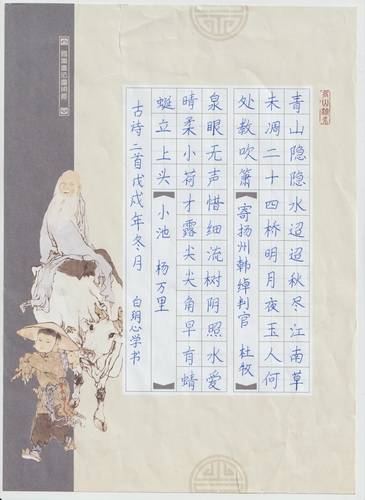 青山隐隐水迢迢秋尽江南草
未凋二十四桥明月夜玉人何
处教吹箫【寄扬州韩绰判官 杜牧】
泉眼无声惜细流树阴照水爱
晴柔小荷才露尖尖角早有蜻
蜓立上头【小池 杨万里】
古诗二首戊戌年冬月 白明心学书